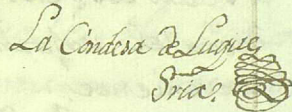 La Condesa de Luque
Sria.